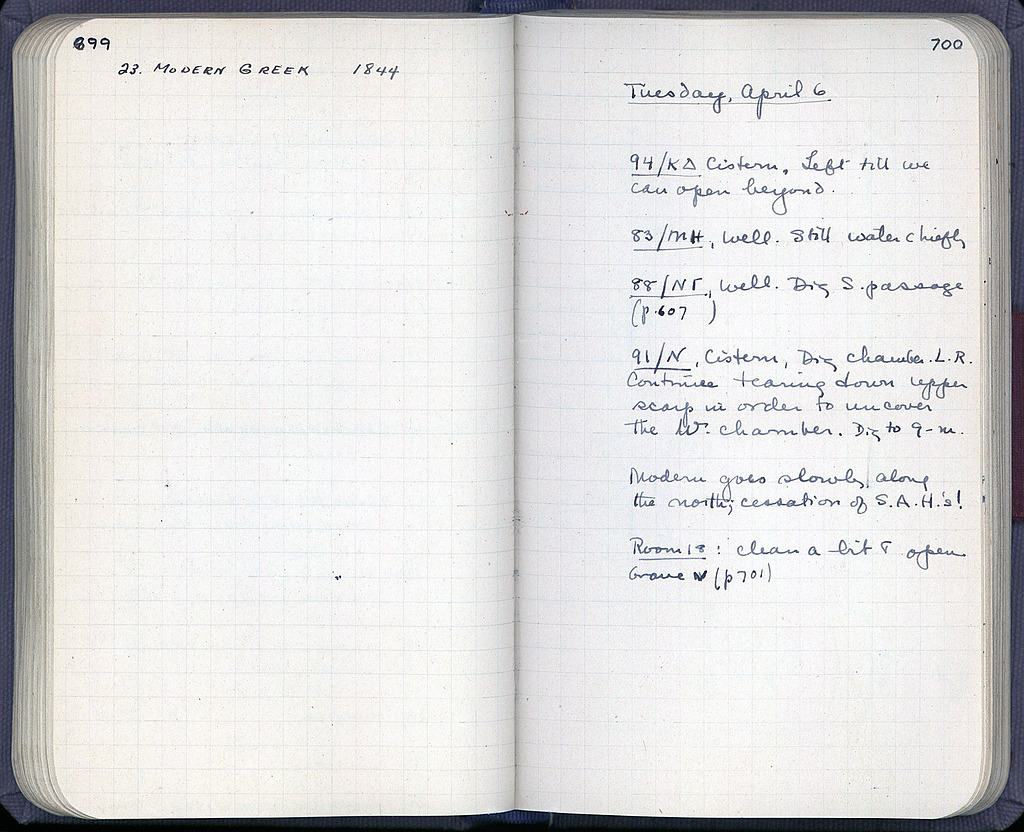 699
23. MODERN GREEK 1844
700
Tuesday, April 6
94/ΚΔ Cistern, Left till we
can open beyond.
83/ΜΗ, well. Still water chiefly
88/ΝΓ, well. Dig S. passage
(p. 607 )
91/Ν, Cistern, Dig chamber. L.R.
Continue tearing down upper
scarp in order to uncover
the W. chamber. Dig to 9-m.
Modern goes slowly along
the north; cessation of S.A.H.'s!
Room 18: clean a bit & open
Grave V (p 701)